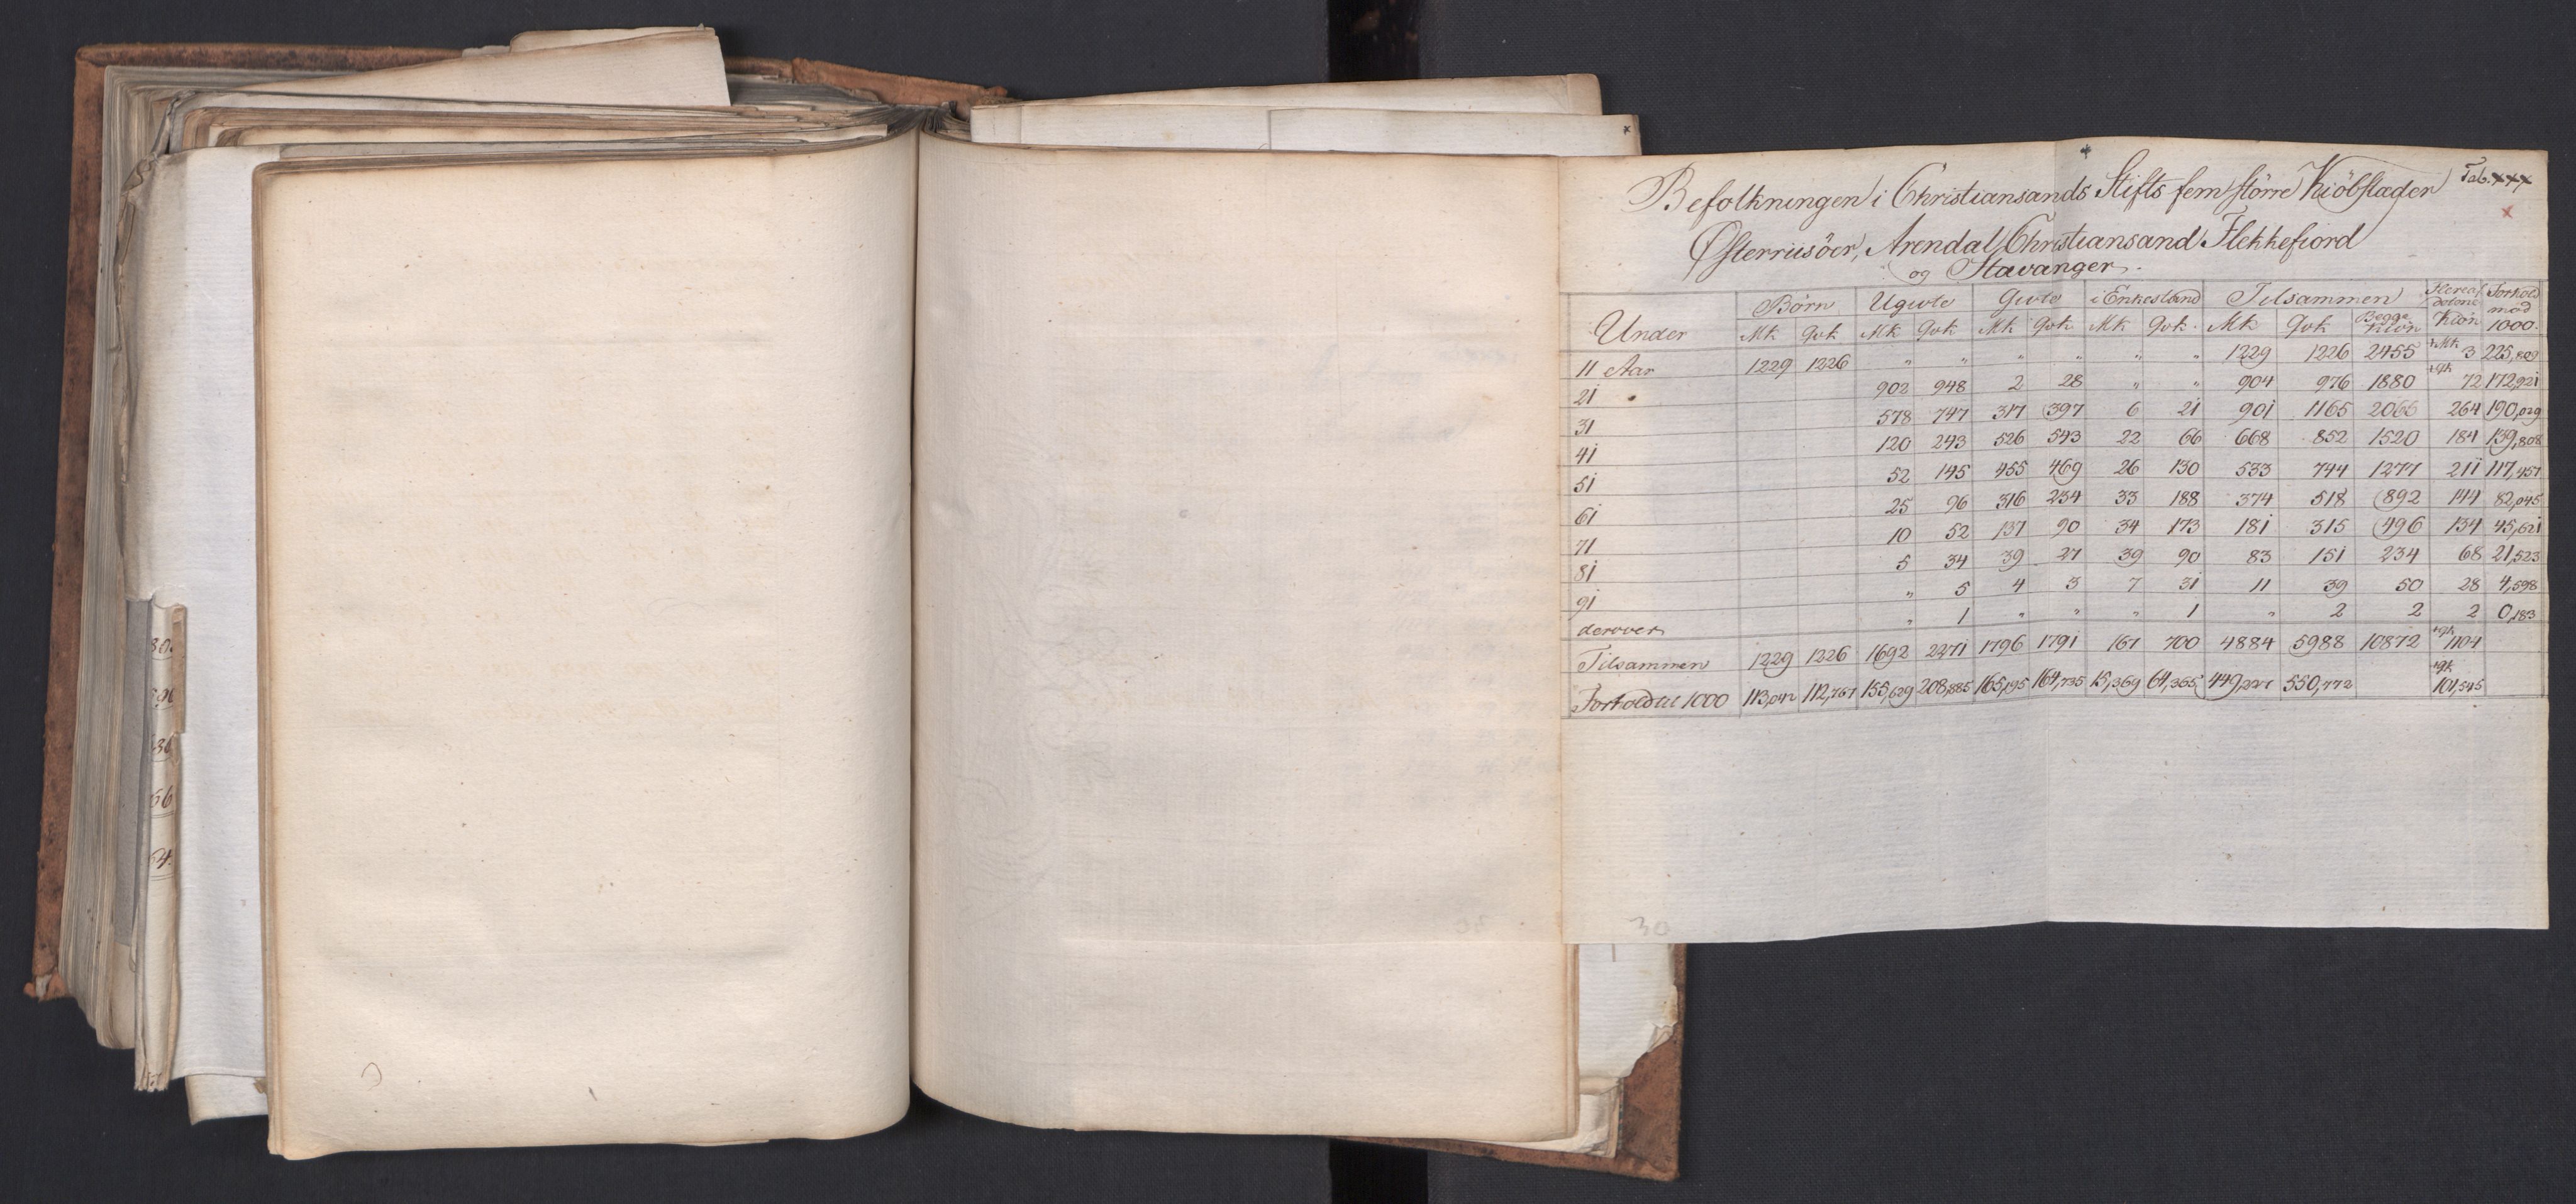 Tab. XXX
Befolkningen i Christiansands Stifts fem större Kiöbstæder
Østerriisöer, Arendal, Christiansand Flekkefiord
og Stavanger.
Under Børn Ugivte Givte i Enkestand Tilsammen Fleere af det ene Kiön Forhold mod 1000.
Mk Qvk Mk Qvk Mk Qvk Mk Qvk Mk Qvk Begge Kiön
11 Aar 1229 1226 " " " " " " 1229 1226 2455 + Mk 3 225,809
21 " 902 948 2 28 " " 904 976 1880 + Qk 72 172,921
31 578 747 317 397 6 21 901 1165 2066 264 190,029
41 120 243 526 543 22 66 668 852 1520 184 139,808
51 52 145 455 469 26 130 533 744 1277 211 117,457
61 25 96 316 234 33 188 374 518 892 144 82,045
71 10 52 137 90 34 173 181 315 496 134 45,621
81 5 34 39 27 39 90 83 151 234 68 21,523
91 " 5 4 3 7 31 11 39 50 28 4,598
derover " 1 " " " 1 " 2 2 2 0,183
Tilsammen 1229 1226 1692 2271 1796 1791 167 700 4884 5988 10872 + Qk 1104
Forhold til 1000 113,042 112,767 155,629 208,885 165,195 164,735 15,369 64,365 449,227 550,772 + Qk 101,545
30